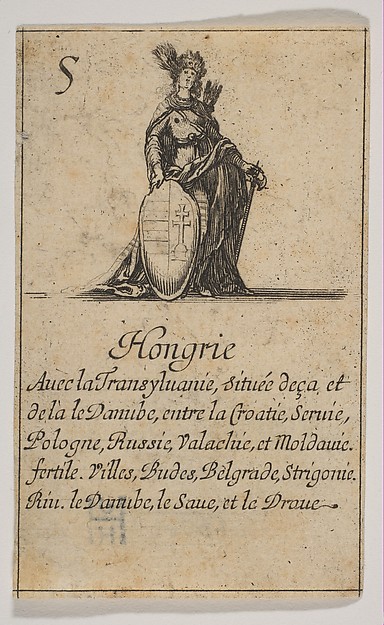 S
Hongrie
Auec la Transyluanie, située deça, et
de là le Danube, entre la Croatie, Seruie,
Pologne, Russie, Valachie, et Moldauie.
fertile. Villes, Budes, Belgrade, Strigonie.
Riu. le Danube, le Saue, et le Droue